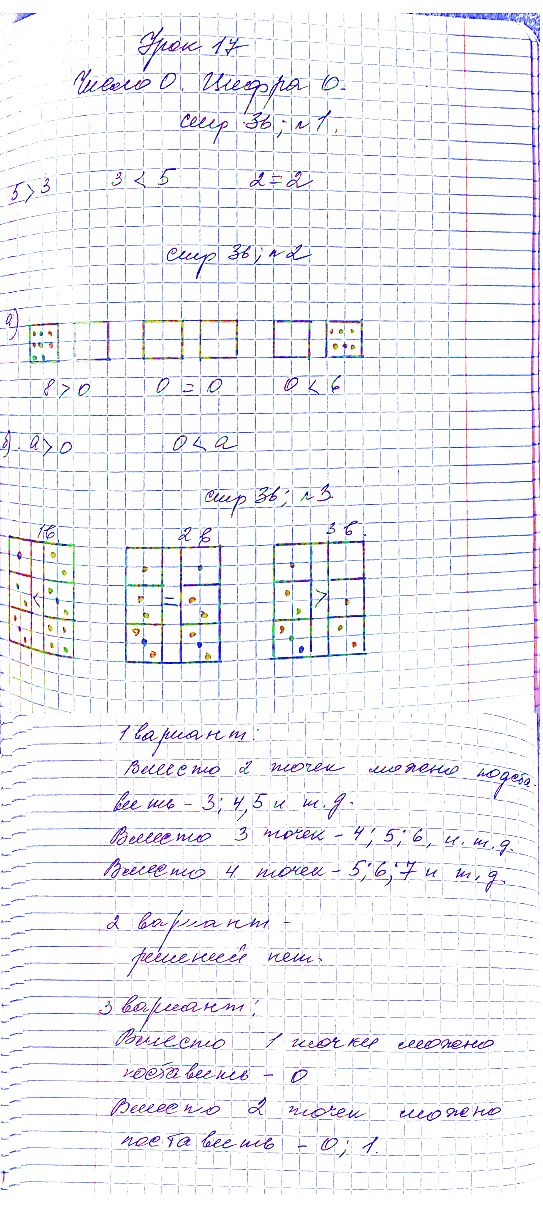 Урок 17
Число 0. Цифра 0.
стр 36; №1.
5 > 3 3 < 5 2 = 2
стр 36; №2
а)
8 > 0 0 = 0 0 < 6
б) а > 0 0 < а
стр 36; №3
1 в. 2 в 3 в.
< = >
1 вариант:
Вместо 2 точек можно подста-
вить - 3; 4, 5 и т.д.
Вместо 3 точек - 4; 5; 6, и. т.д.
Вместо 4 точек - 5; 6; 7 и т.д.
2 вариант -
решений нет.
3 вариант:
Вместо 1 точки можно
поставить - 0
Вместо 2 точек можно
поставить - 0; 1.